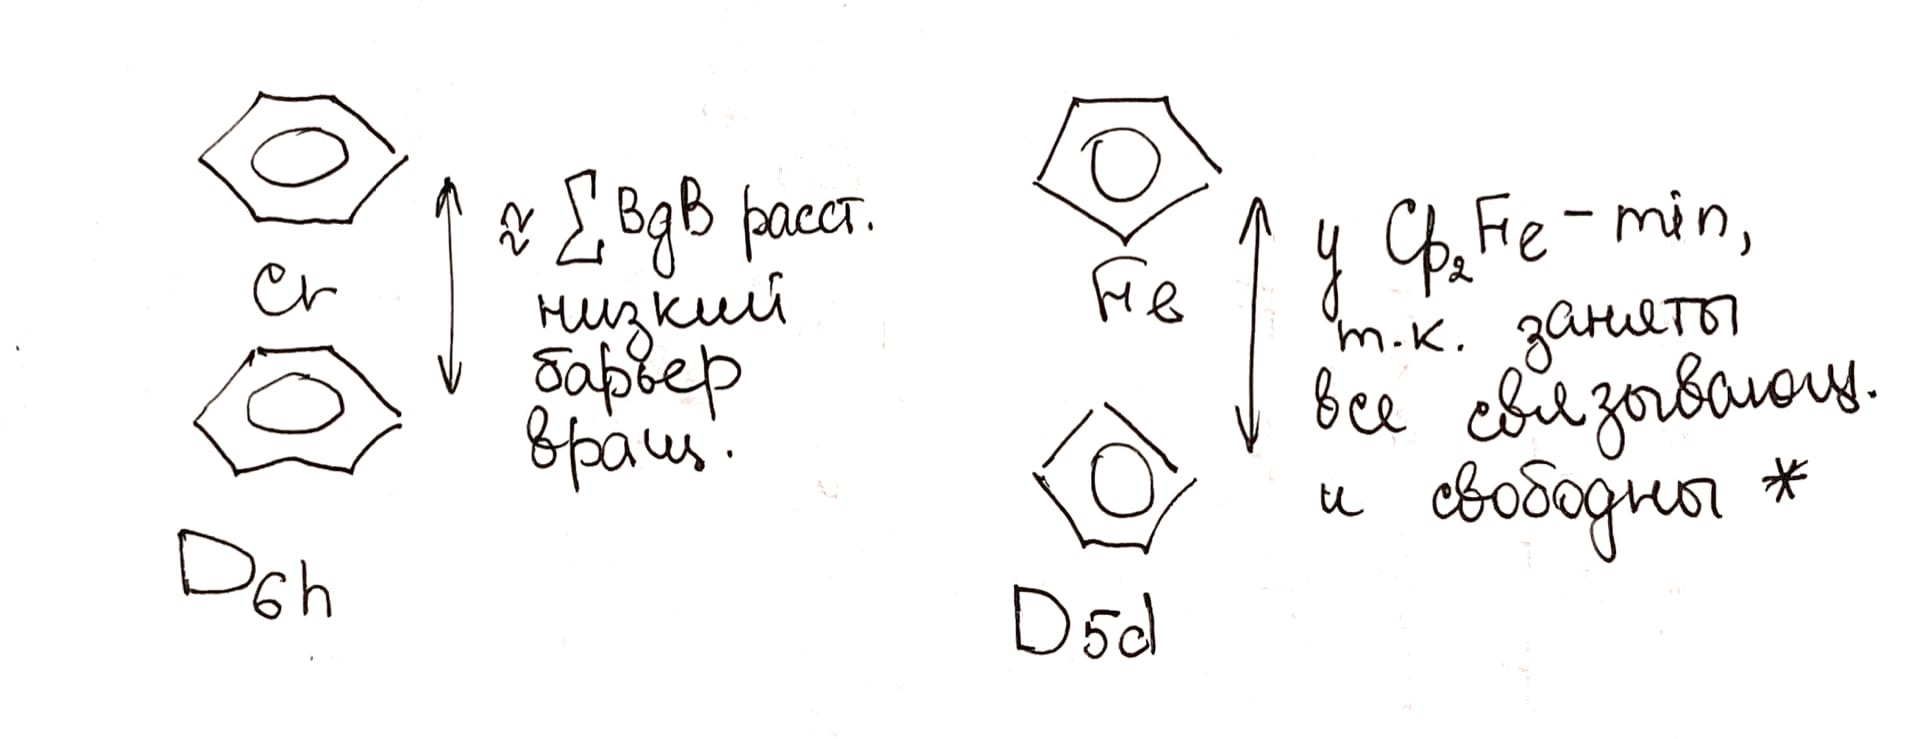 Cr
D6h
≈ ∑ ВдВ расст.
низкий
барьер
вращ.
Fe
D5d
у Cp₂Fe – min,
т.к. заняты
все связывающ.
и свободны *